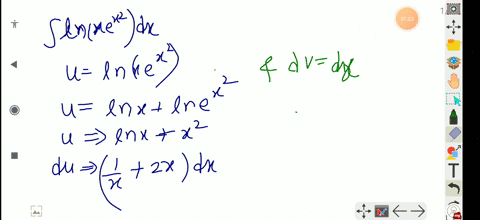 ∫ ln(xe^{x^2}) dx
u = ln(xe^{x^2}) & dv = dx
u = ln x + ln e^{x^2}
u ⇒ ln x + x^2
du ⇒ (1/x + 2x) dx